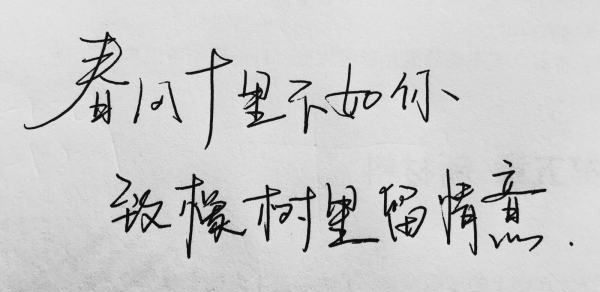 春风十里不如你、
致橡树里留情意.